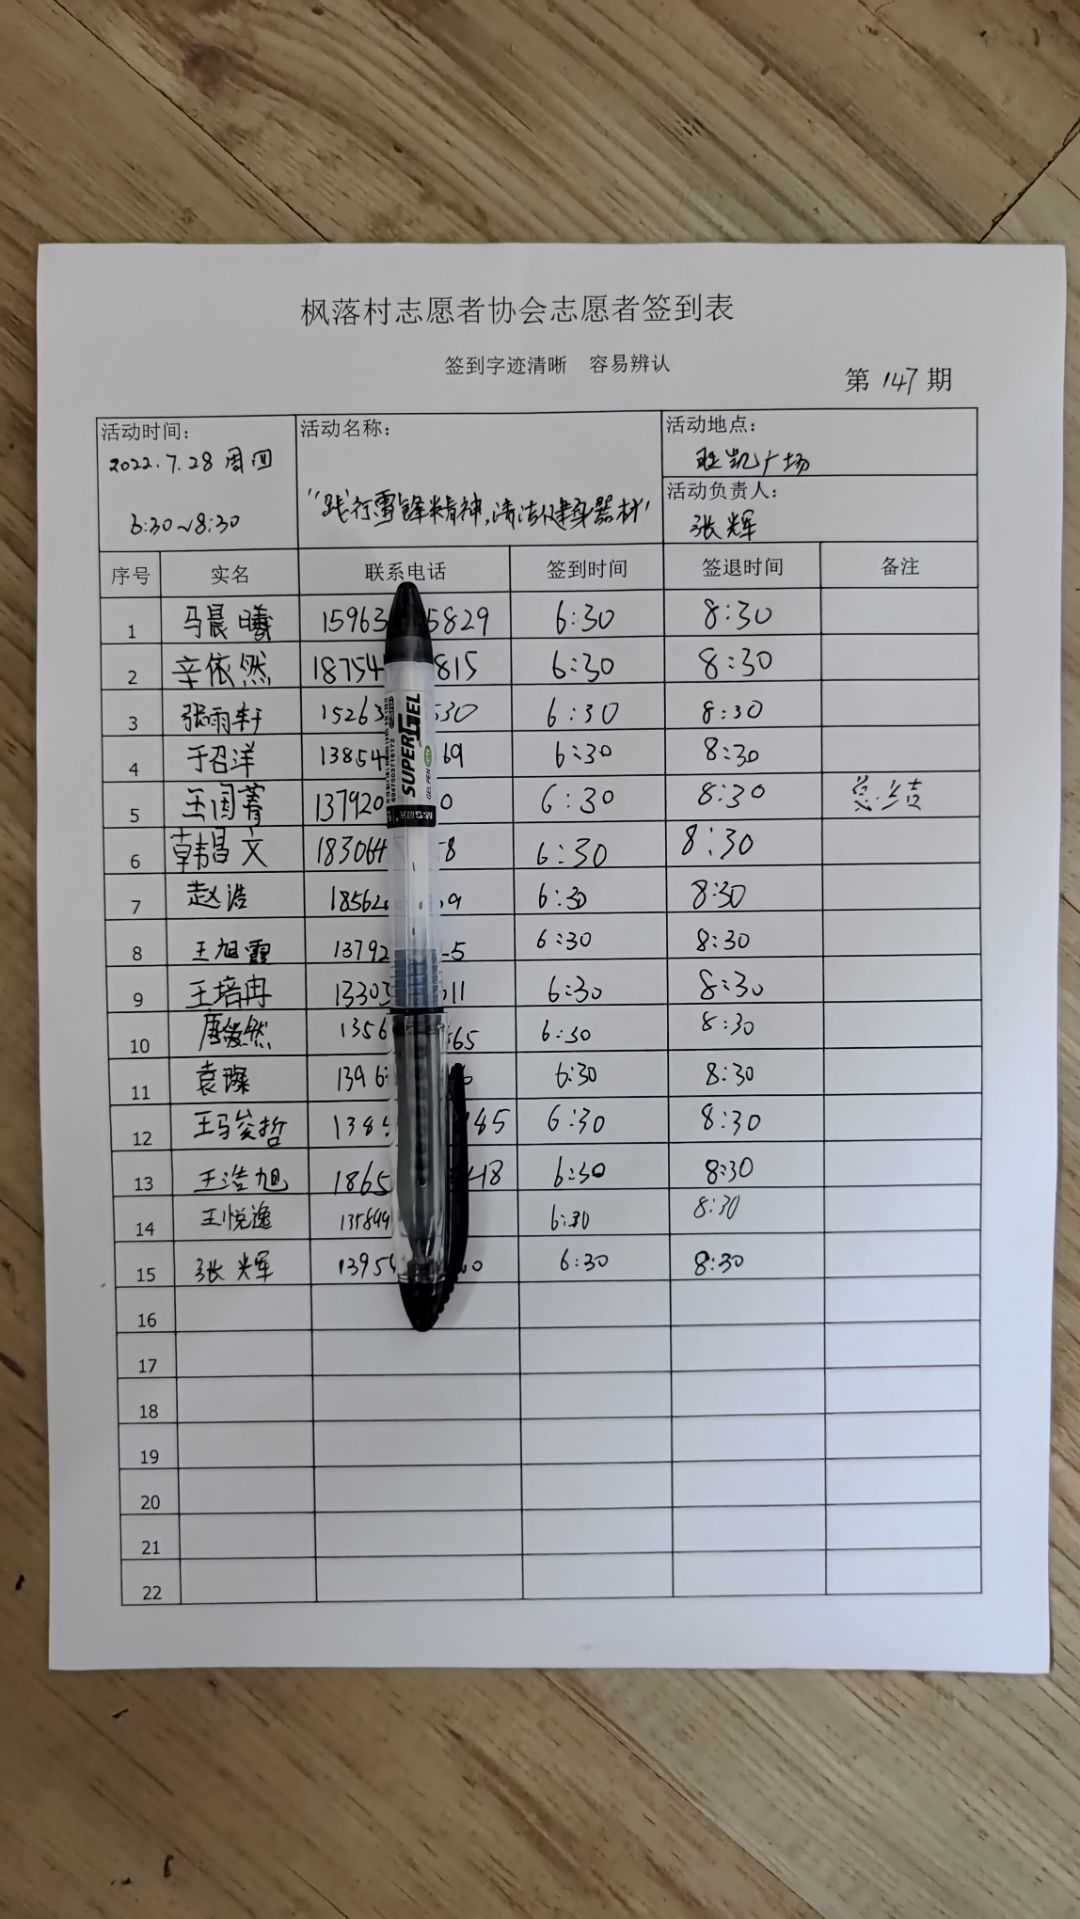 枫落村志愿者协会志愿者签到表
签到字迹清晰 容易辨认
第 147 期
活动时间: 活动名称: 活动地点:
2022.7.28 周四 广场
6:30~8:30 "践行雷锋精神,清洁健身器材" 活动负责人:
张辉
序号 实名 联系电话 签到时间 签退时间 备注
1 马晨曦 15963 5829 6:30 8:30
2 辛依然 18754 815 6:30 8:30
3 张雨轩 15263 530 6:30 8:30
4 于召洋 13854 69 6:30 8:30
5 王国菁 137920 0 6:30 8:30 总结
6 韩昌文 183064 8 6:30 8:30
7 赵浩 18562 9 6:30 8:30
8 王旭霞 13792 5 6:30 8:30
9 王培冉 13303 11 6:30 8:30
10 唐 然 1356 65 6:30 8:30
11 袁璨 1396 6:30 8:30
12 王马俊哲 138 45 6:30 8:30
13 王浩旭 1865 48 6:30 8:30
14 王悦逸 135899 6:30 8:30
15 张辉 1395 0 6:30 8:30
16
17
18
19
20
21
22
SUPERGEL
GELPEN
M&G